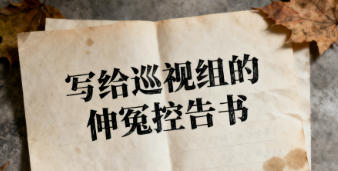 写给巡视组的
伸冤控告书